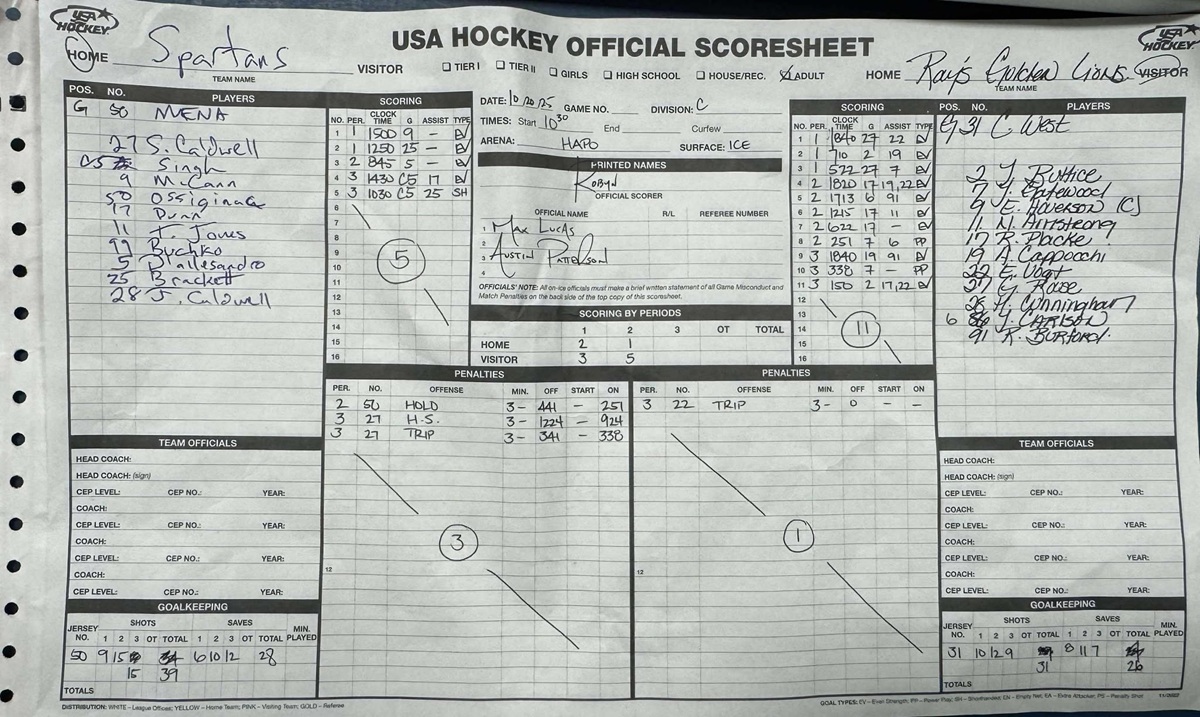 USA HOCKEY OFFICIAL SCORESHEET
USA HOCKEY
HOME Spartans VISITOR
TEAM NAME
☐ TIER I ☐ TIER II ☐ GIRLS ☐ HIGH SCHOOL ☐ HOUSE/REC. ☒ ADULT
HOME Ray's Golden Lions VISITOR
TEAM NAME
USA HOCKEY
POS. NO. PLAYERS
G 50 MENA
27 S. Caldwell
C5 Singh
9 McCann
50 Ossiginac
17 Dunn
11 T. Jones
99 Buchko
5 Dallesandro
25 Brackett
28 J. Caldwell
SCORING
NO. PER. CLOCK TIME G ASSIST TYPE
1 1 1500 9 - EV
2 1 1250 25 - EV
3 2 845 5 - EV
4 3 1430 C5 17 EV
5 3 1030 C5 25 SH
6
7
8
9
10
11
12
13
14
15
16
5
DATE: 10 20 25 GAME NO. DIVISION: C
TIMES: Start 10 30 End Curfew
ARENA: HAPO SURFACE: ICE
PRINTED NAMES
Robyn
OFFICIAL SCORER
OFFICIAL NAME R/L REFEREE NUMBER
1 Max Lucas
2
3 Austin Patterson
4
OFFICIALS' NOTE: All on-ice officials must make a brief written statement of all Game Misconduct and
Match Penalties on the back side of the top copy of this scoresheet.
SCORING BY PERIODS
1 2 3 OT TOTAL
HOME 2 1
VISITOR 3 5
SCORING
NO. PER. CLOCK TIME G ASSIST TYPE
1 1 840 27 22 EV
2 1 710 2 19 EV
3 1 522 27 7 EV
4 2 1820 17 19,22 EV
5 2 1713 6 91 EV
6 2 1215 17 11 EV
7 2 622 17 - EV
8 2 251 7 6 PP
9 3 1840 19 91 EV
10 3 338 7 - PP
11 3 150 2 17,22 EV
12
13
14
15
16
11
POS. NO. PLAYERS
G 31 C West
2 J. Buttice
7 J. Gatewood
9 E. Roverson (C)
11 N. Armstrong
17 R. Placke
19 A. Cappocchi
22 E. Vogt
27 G. Rouse
28 H. Cunningham
6 J. Carlson
91 R. Burford
PENALTIES
PER. NO. OFFENSE MIN. OFF START ON
2 50 HOLD 3- 441 - 251
3 27 H.S. 3- 1224 - 924
3 27 TRIP 3- 341 - 338
12
3
PENALTIES
PER. NO. OFFENSE MIN. OFF START ON
3 22 TRIP 3- 0 - -
12
1
TEAM OFFICIALS
HEAD COACH:
HEAD COACH: (sign)
CEP LEVEL: CEP NO.: YEAR:
COACH:
CEP LEVEL: CEP NO.: YEAR:
COACH:
CEP LEVEL: CEP NO.: YEAR:
COACH:
CEP LEVEL: CEP NO.: YEAR:
GOALKEEPING
SHOTS SAVES
JERSEY NO. 1 2 3 OT TOTAL 1 2 3 OT TOTAL MIN. PLAYED
50 9 15 6 10 12 28
15 39
TOTALS
TEAM OFFICIALS
HEAD COACH:
HEAD COACH: (sign)
CEP LEVEL: CEP NO.: YEAR:
COACH:
CEP LEVEL: CEP NO.: YEAR:
COACH:
CEP LEVEL: CEP NO.: YEAR:
COACH:
CEP LEVEL: CEP NO.: YEAR:
GOALKEEPING
SHOTS SAVES
JERSEY NO. 1 2 3 OT TOTAL 1 2 3 OT TOTAL MIN. PLAYED
31 10 12 9 8 11 7
31 26
TOTALS
DISTRIBUTION: WHITE – League Offices; YELLOW – Home Team; PINK – Visiting Team; GOLD – Referee
GOAL TYPES: EV – Even Strength, PP – Power Play, SH – Shorthanded, EN – Empty Net, EA – Extra Attacker, PS – Penalty Shot